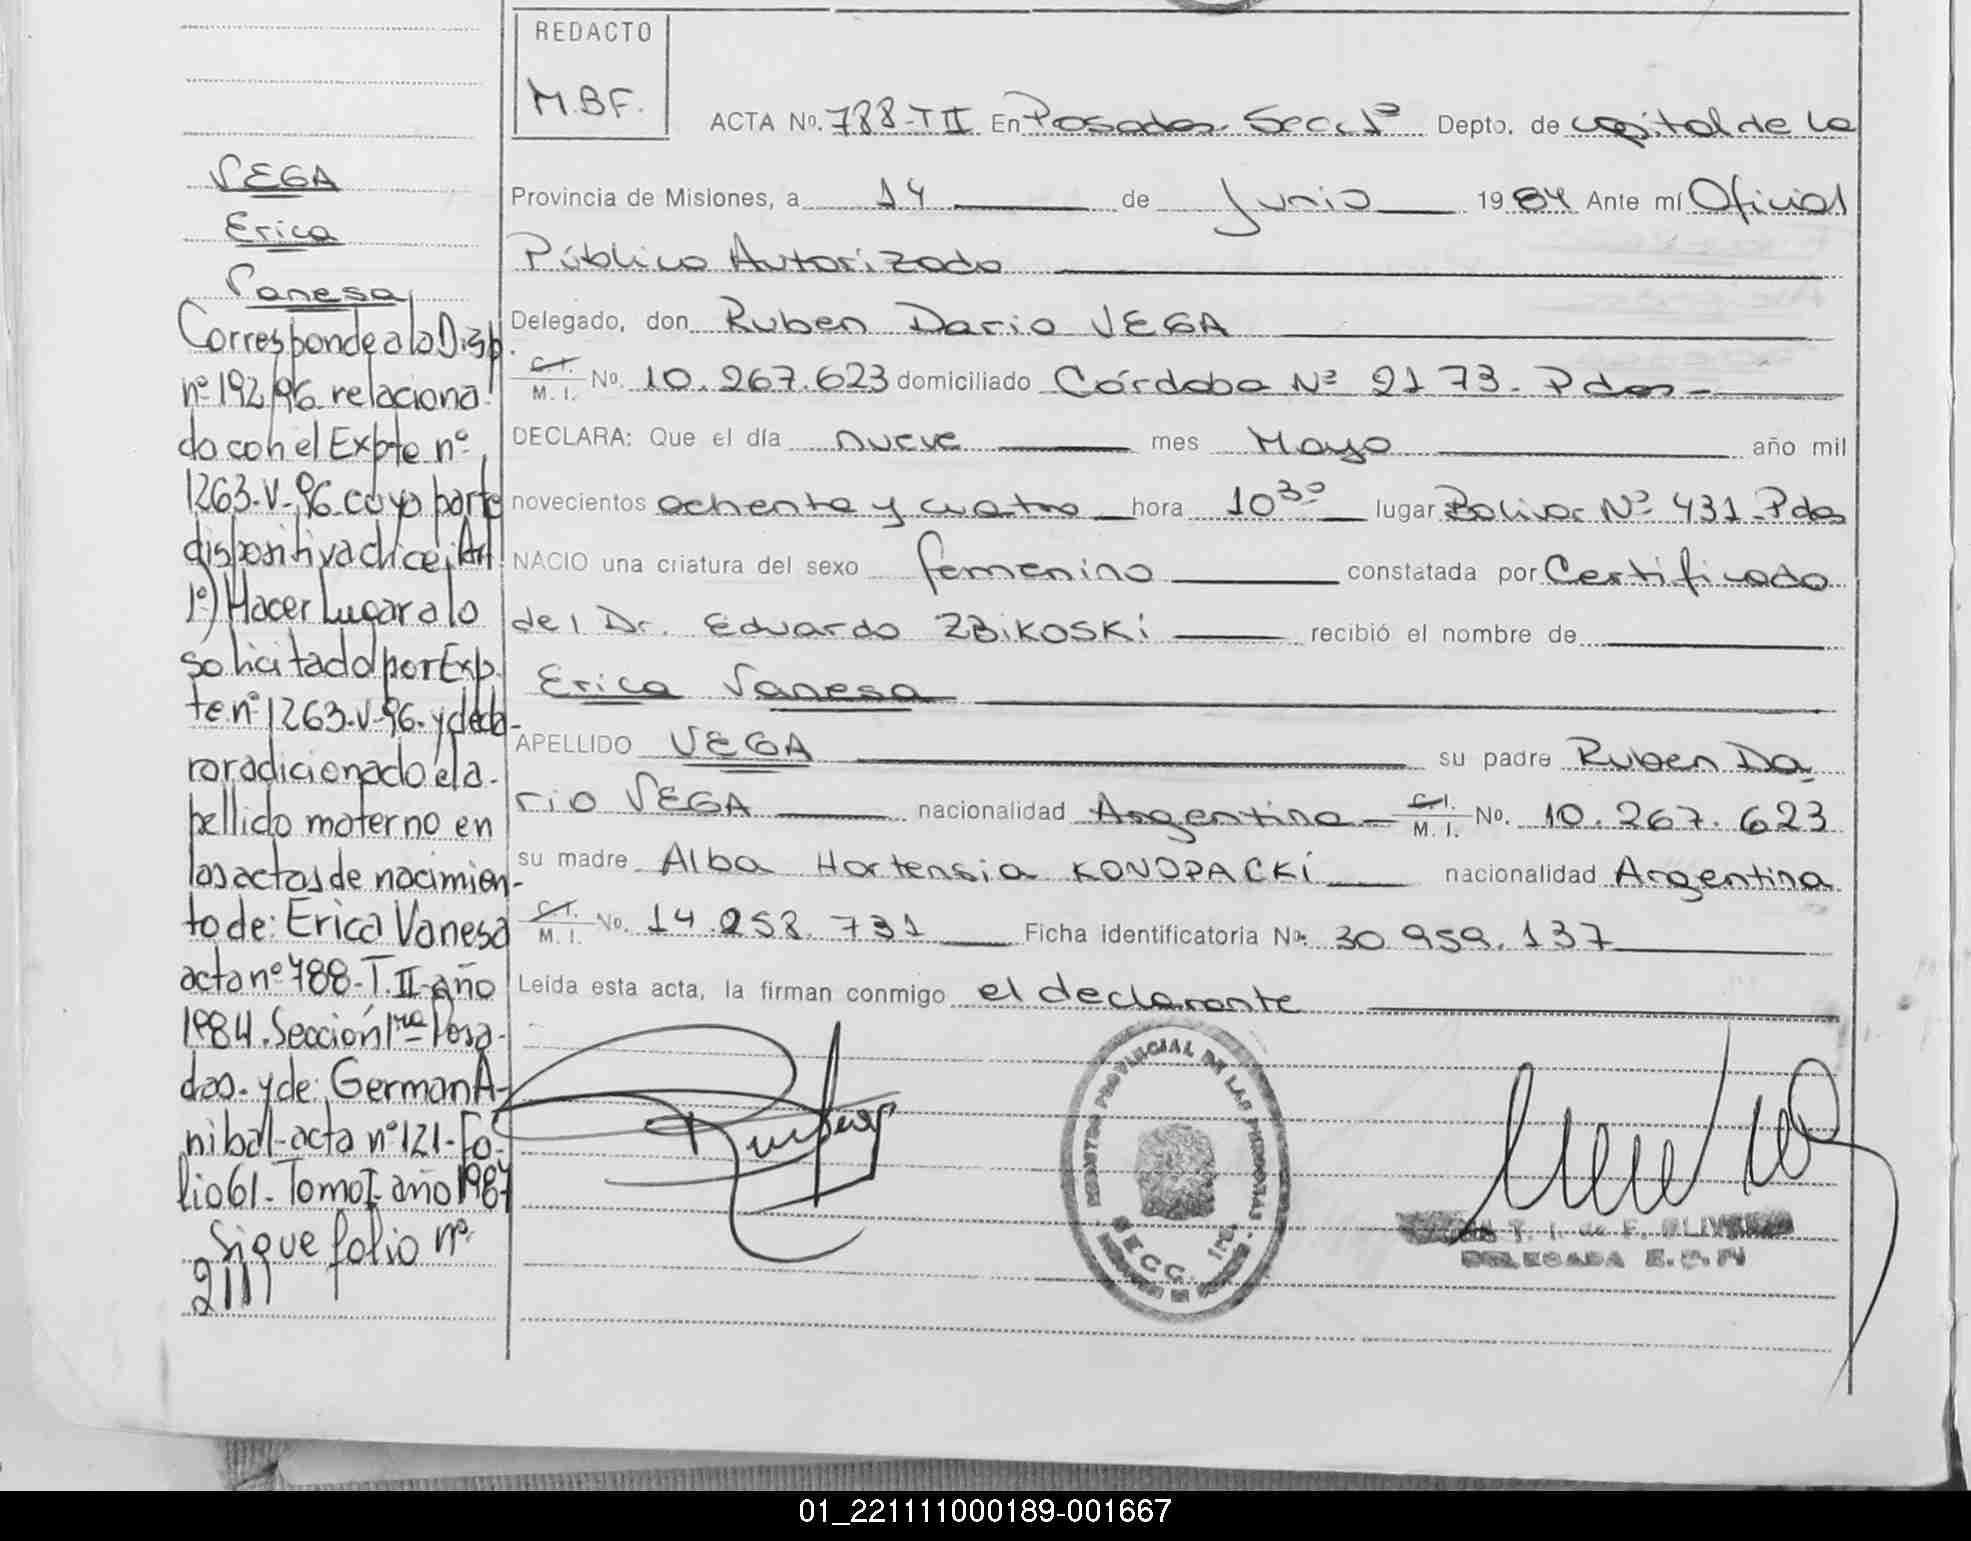 REDACTO
M.B.F.
ACTA No. 788-T II En Posadas Secc 1ª Depto. de capital de la
Provincia de Misiones, a 14 de Junio 1984 Ante mí Oficial
Público Autorizado
Delegado, don Ruben Dario VEGA
C.I. M. I. No. 10.267.623 domiciliado Córdoba Nº 2173- Pdas-
DECLARA: Que el día nueve mes Mayo año mil
novecientos ochenta y cuatro hora 10³⁰ lugar Bolivar Nº 431-Pdas
NACIO una criatura del sexo femenino constatada por Certificado
del Dr. Eduardo ZBiKOSKi recibió el nombre de
Erica Vanesa
APELLIDO VEGA su padre Ruben Da
rio VEGA nacionalidad Argentina C.I. M. I. No. 10.267.623
su madre Alba Hortensia KONOPACKi nacionalidad Argentina
C.I. M. I. No. 14.258.731 Ficha identificatoria No. 30.959.137
Leída esta acta, la firman conmigo el declarante
VEGA
Erica
Vanesa
Corresponde a la Disp.
nº 192/96 relaciona
da con el Expte nº
1263-V-96 cuya parte
dispositiva dice: Art.
1º) Hacer Lugar a lo
solicitado por Exp
te nº 1263-V-96- y decla-
rar adicionado el a-
pellido materno en
las actas de nacimien-
to de: Erica Vanesa
acta nº 788-T.II-año
1984. Sección 1ra Posa-
das- y de: German A-
nibal-acta nº 121-Fo-
lio 61- Tomo I- año 1987
Sigue folio nº
2111
REGISTRO PROVINCIAL DE LAS PERSONAS
SECC. 1ra.
T. I. de F. OLIVERA
DELEGADA
01_221111000189-001667